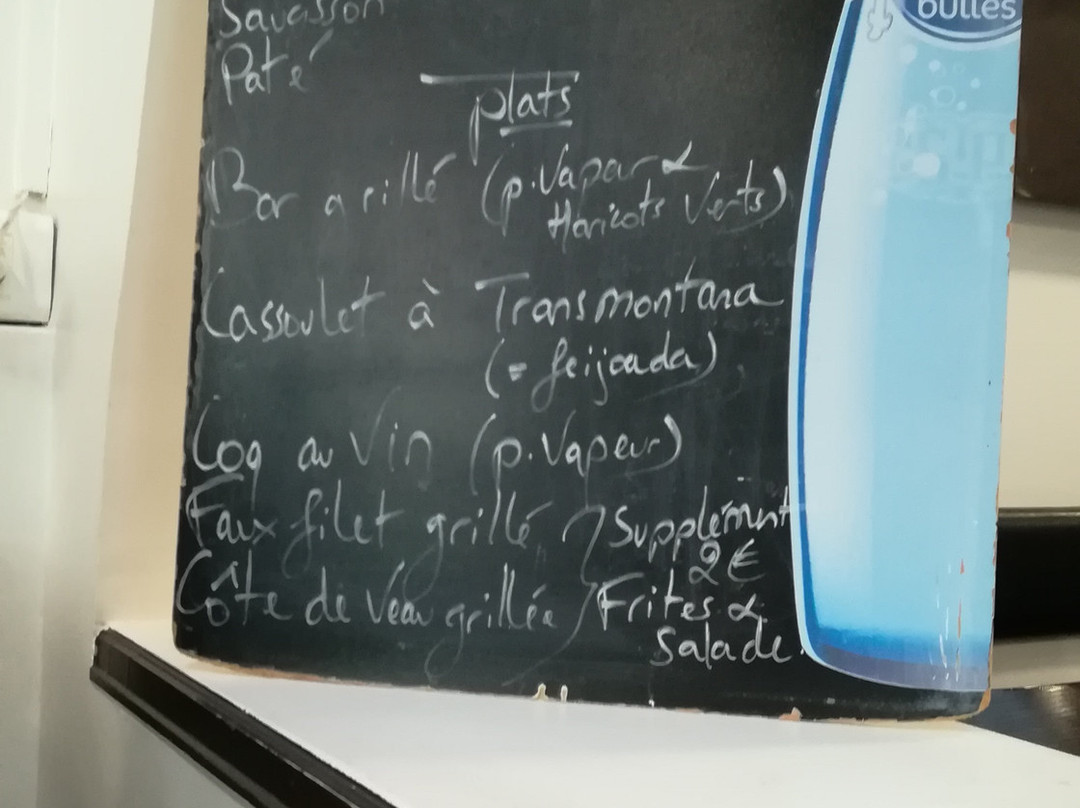 bulles
Saucisson
Paté
plats
Bar grillé (p. Vapeur &
Haricots Verts)
Cassoulet à Transmontana
(= feijoada)
Coq au Vin (p. Vapeur)
Faux filet grillé } Supplément
2€
Côte de Veau grillée } Frites &
Salade.